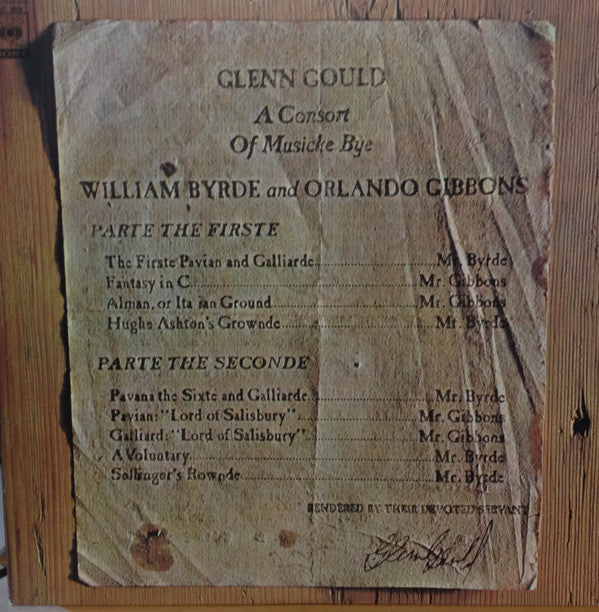 GLENN GOULD
A Consort
Of Musicke Bye
WILLIAM BYRDE and ORLANDO GIBBONS
PARTE THE FIRSTE
The Firste Pavian and Galliarde..........Mr. Byrde
Fantasy in C..........Mr. Gibbons
Alman, or Ita ian Ground..........Mr. Gibbons
Hughe Ashton's Grownde..........Mr. Byrde
PARTE THE SECONDE
Pavana the Sixte and Galliarde..........Mr. Byrde
Pavian: "Lord of Salisbury"..........Mr. Gibbons
Galliard: "Lord of Salisbury"..........Mr. Gibbons
A Voluntary..........Mr. Byrde
Sellinger's Rownde..........Mr. Byrde
RENDERED BY THEIR DEVOTED SERVANT
Glenn Gould